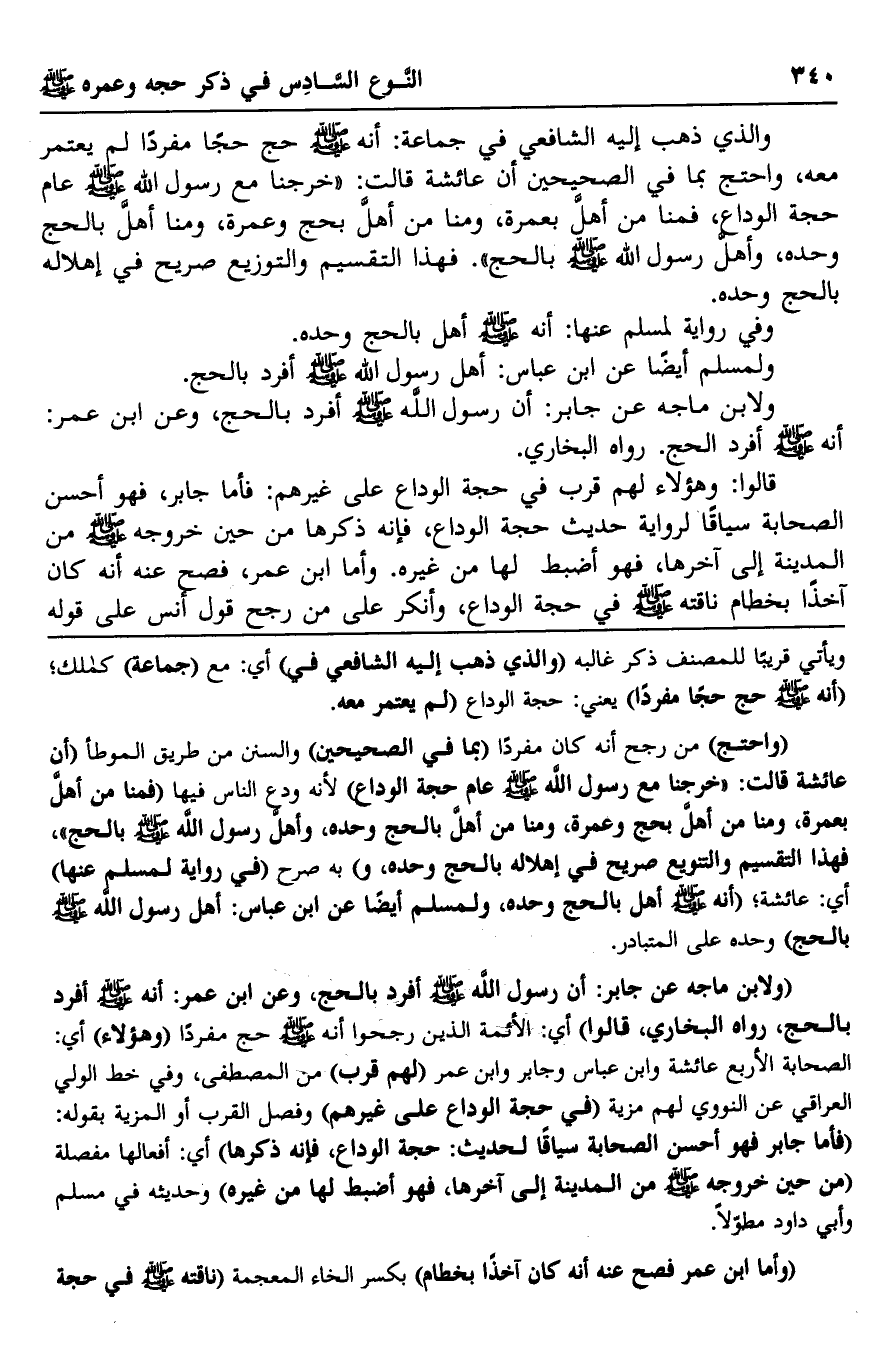 ٣٤٠ النَّوع السَّادِس في ذكر حجه وعمره ﷺ
والذي ذهب إليه الشافعي في جماعة: أنه ﷺ حج حجًا مفردًا لم يعتمر
معه، واحتج بما في الصحيحين أن عائشة قالت: «خرجنا مع رسول الله ﷺ عام
حجة الوداع، فمنا من أهلَّ بعمرة، ومنا من أهلَّ بحج وعمرة، ومنا أهلَّ بالحج
وحده، وأهلَّ رسول الله ﷺ بالحج». فهذا التقسيم والتوزيع صريح في إهلاله
بالحج وحده.
وفي رواية لمسلم عنها: أنه ﷺ أهل بالحج وحده.
ولمسلم أيضًا عن ابن عباس: أهل رسول الله ﷺ أفرد بالحج.
ولابن ماجه عن جابر: أن رسول اللَّه ﷺ أفرد بالحج، وعن ابن عمر:
أنه ﷺ أفرد الحج. رواه البخاري.
قالوا: وهؤلاء لهم قرب في حجة الوداع على غيرهم: فأما جابر، فهو أحسن
الصحابة سياقًا لرواية حديث حجة الوداع، فإنه ذكرها من حين خروجه ﷺ من
المدينة إلى آخرها، فهو أضبط لها من غيره. وأما ابن عمر، فصح عنه أنه كان
آخذًا بخطام ناقته ﷺ في حجة الوداع، وأنكر على من رجح قول أنس على قوله
ويأتي قريبًا للمصنف ذكر غالبه (والذي ذهب إليه الشافعي في) أي: مع (جماعة) كملك؛
(أنه ﷺ حج حجًا مفردًا) يعني: حجة الوداع (لم يعتمر معه.
(واحتج) من رجح أنه كان مفردًا (بما في الصحيحين) والسنن من طريق الموطأ (أن
عائشة قالت: «خرجنا مع رسول اللَّه ﷺ عام حجة الوداع) لأنه ودع الناس فيها (فمنا من أهلَّ
بعمرة، ومنا من أهلَّ بحج وعمرة، ومنا من أهلَّ بالحج وحده، وأهلَّ رسول اللَّه ﷺ بالحج»،
فهذا التقسيم والتنويع صريح في إهلاله بالحج وحده، و) به صرح (في رواية لمسلم عنها)
أي: عائشة؛ (أنه ﷺ أهل بالحج وحده، ولمسلم أيضًا عن ابن عباس: أهل رسول اللَّه ﷺ
بالحج) وحده على المتبادر.
(ولابن ماجه عن جابر: أن رسول اللَّه ﷺ أفرد بالحج، وعن ابن عمر: أنه ﷺ أفرد
بالحج، رواه البخاري، قالوا) أي: الأئمة الذين رجحوا أنه ﷺ حج مفردًا (وهؤلاء) أي:
الصحابة الأربع عائشة وابن عباس وجابر وابن عمر (لهم قرب) من المصطفى، وفي خط الولي
العراقي عن النووي لهم مزية (في حجة الوداع على غيرهم) وفصل القرب أو المزية بقوله:
(فأما جابر فهو أحسن الصحابة سياقًا لحديث: حجة الوداع، فإنه ذكرها) أي: أفعالها مفصلة
(من حين خروجه ﷺ من المدينة إلى آخرها، فهو أضبط لها من غيره) وحديثه في مسلم
وأبي داود مطوّلاً.
(وأما ابن عمر فصح عنه أنه كان آخذًا بخطام) بكسر الخاء المعجمة (ناقته ﷺ في حجة